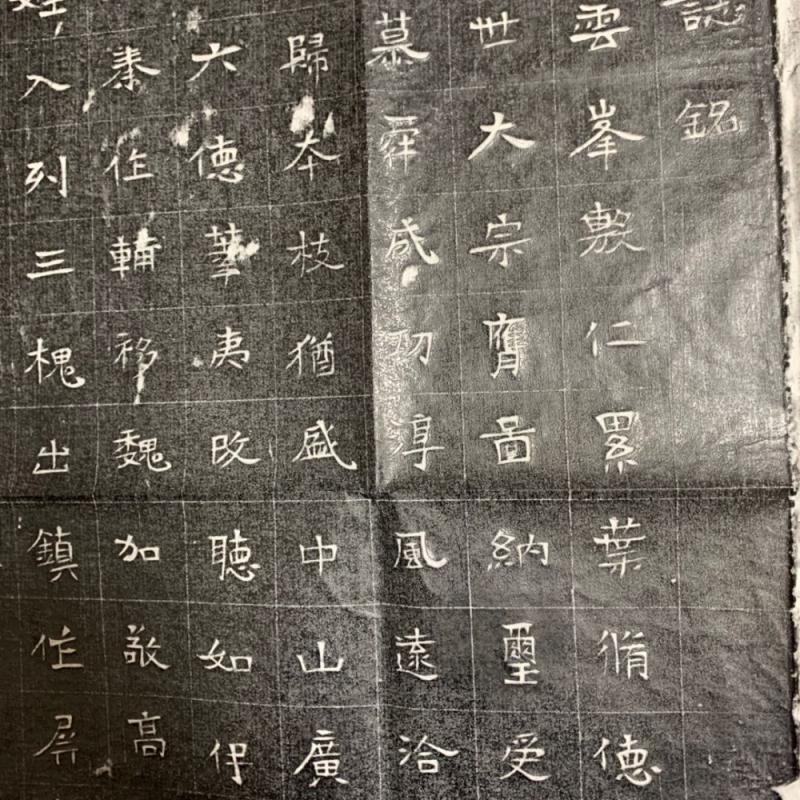 誌銘
雲峯敷仁累葉脩德
世大宗膺啚納璽受
慕舜成功淳風遠洽
歸本枝猶盛中山廣
六德華夷改聽如伊
秦作輔移魏加敬高
入列三槐出鎮作屏